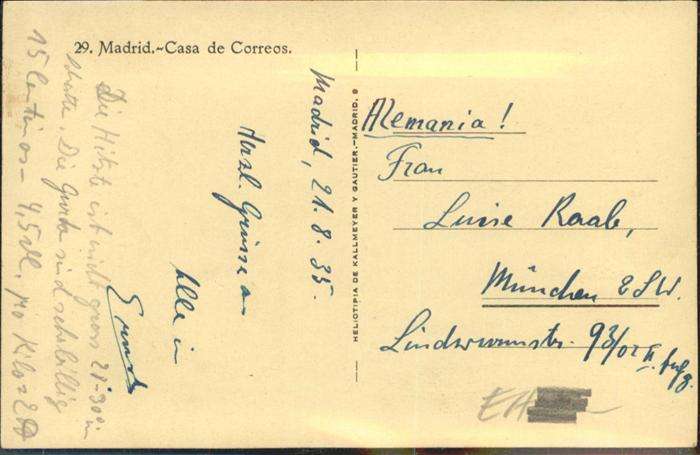 29. Madrid.-Casa de Correos.
Madrid, 21.8.35.
Herzl. Grüsse an
Alle in
Ernst
Die Hitze ist nicht gross 28-30° im
sind sehr billig
15 Centimos - 4,5 pro Kilo =
HELIOTIPIA DE KALLMEYER Y GAUTIER.-MADRID. 9
Alemania!
Frau
Luise Raab,
München 2 SW.
Lindwurmstr. 93/02 II.